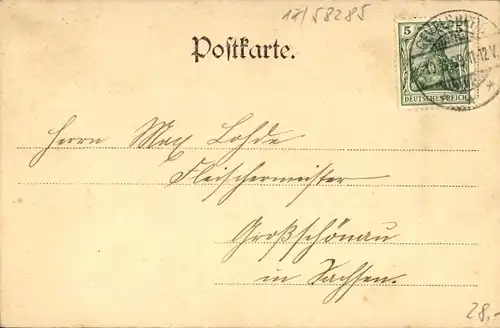 17/58285
Postkarte.
5
DEUTSCHES REICH
11-12V.
Herrn Max Lohde
Fleischermeister
Großschönau
in Sachsen.
28,-